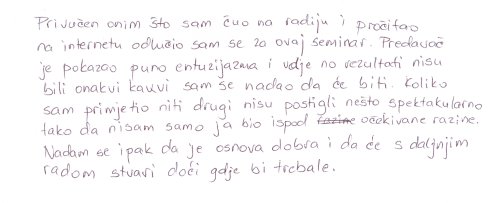 Privučen onim što sam čuo na radiju i pročitao
na internetu odlučio sam se za ovaj seminar. Predavač
je pokazao puno entuzijazma i volje no rezultati nisu
bili onakvi kakvi sam se nadao da će biti. Koliko
sam primjetio niti drugi nisu postigli nešto spektakularno
tako da nisam samo ja bio ispod razine očekivane razine.
Nadam se ipak da je osnova dobra i da će s daljnjim
radom stvari doći gdje bi trebale.